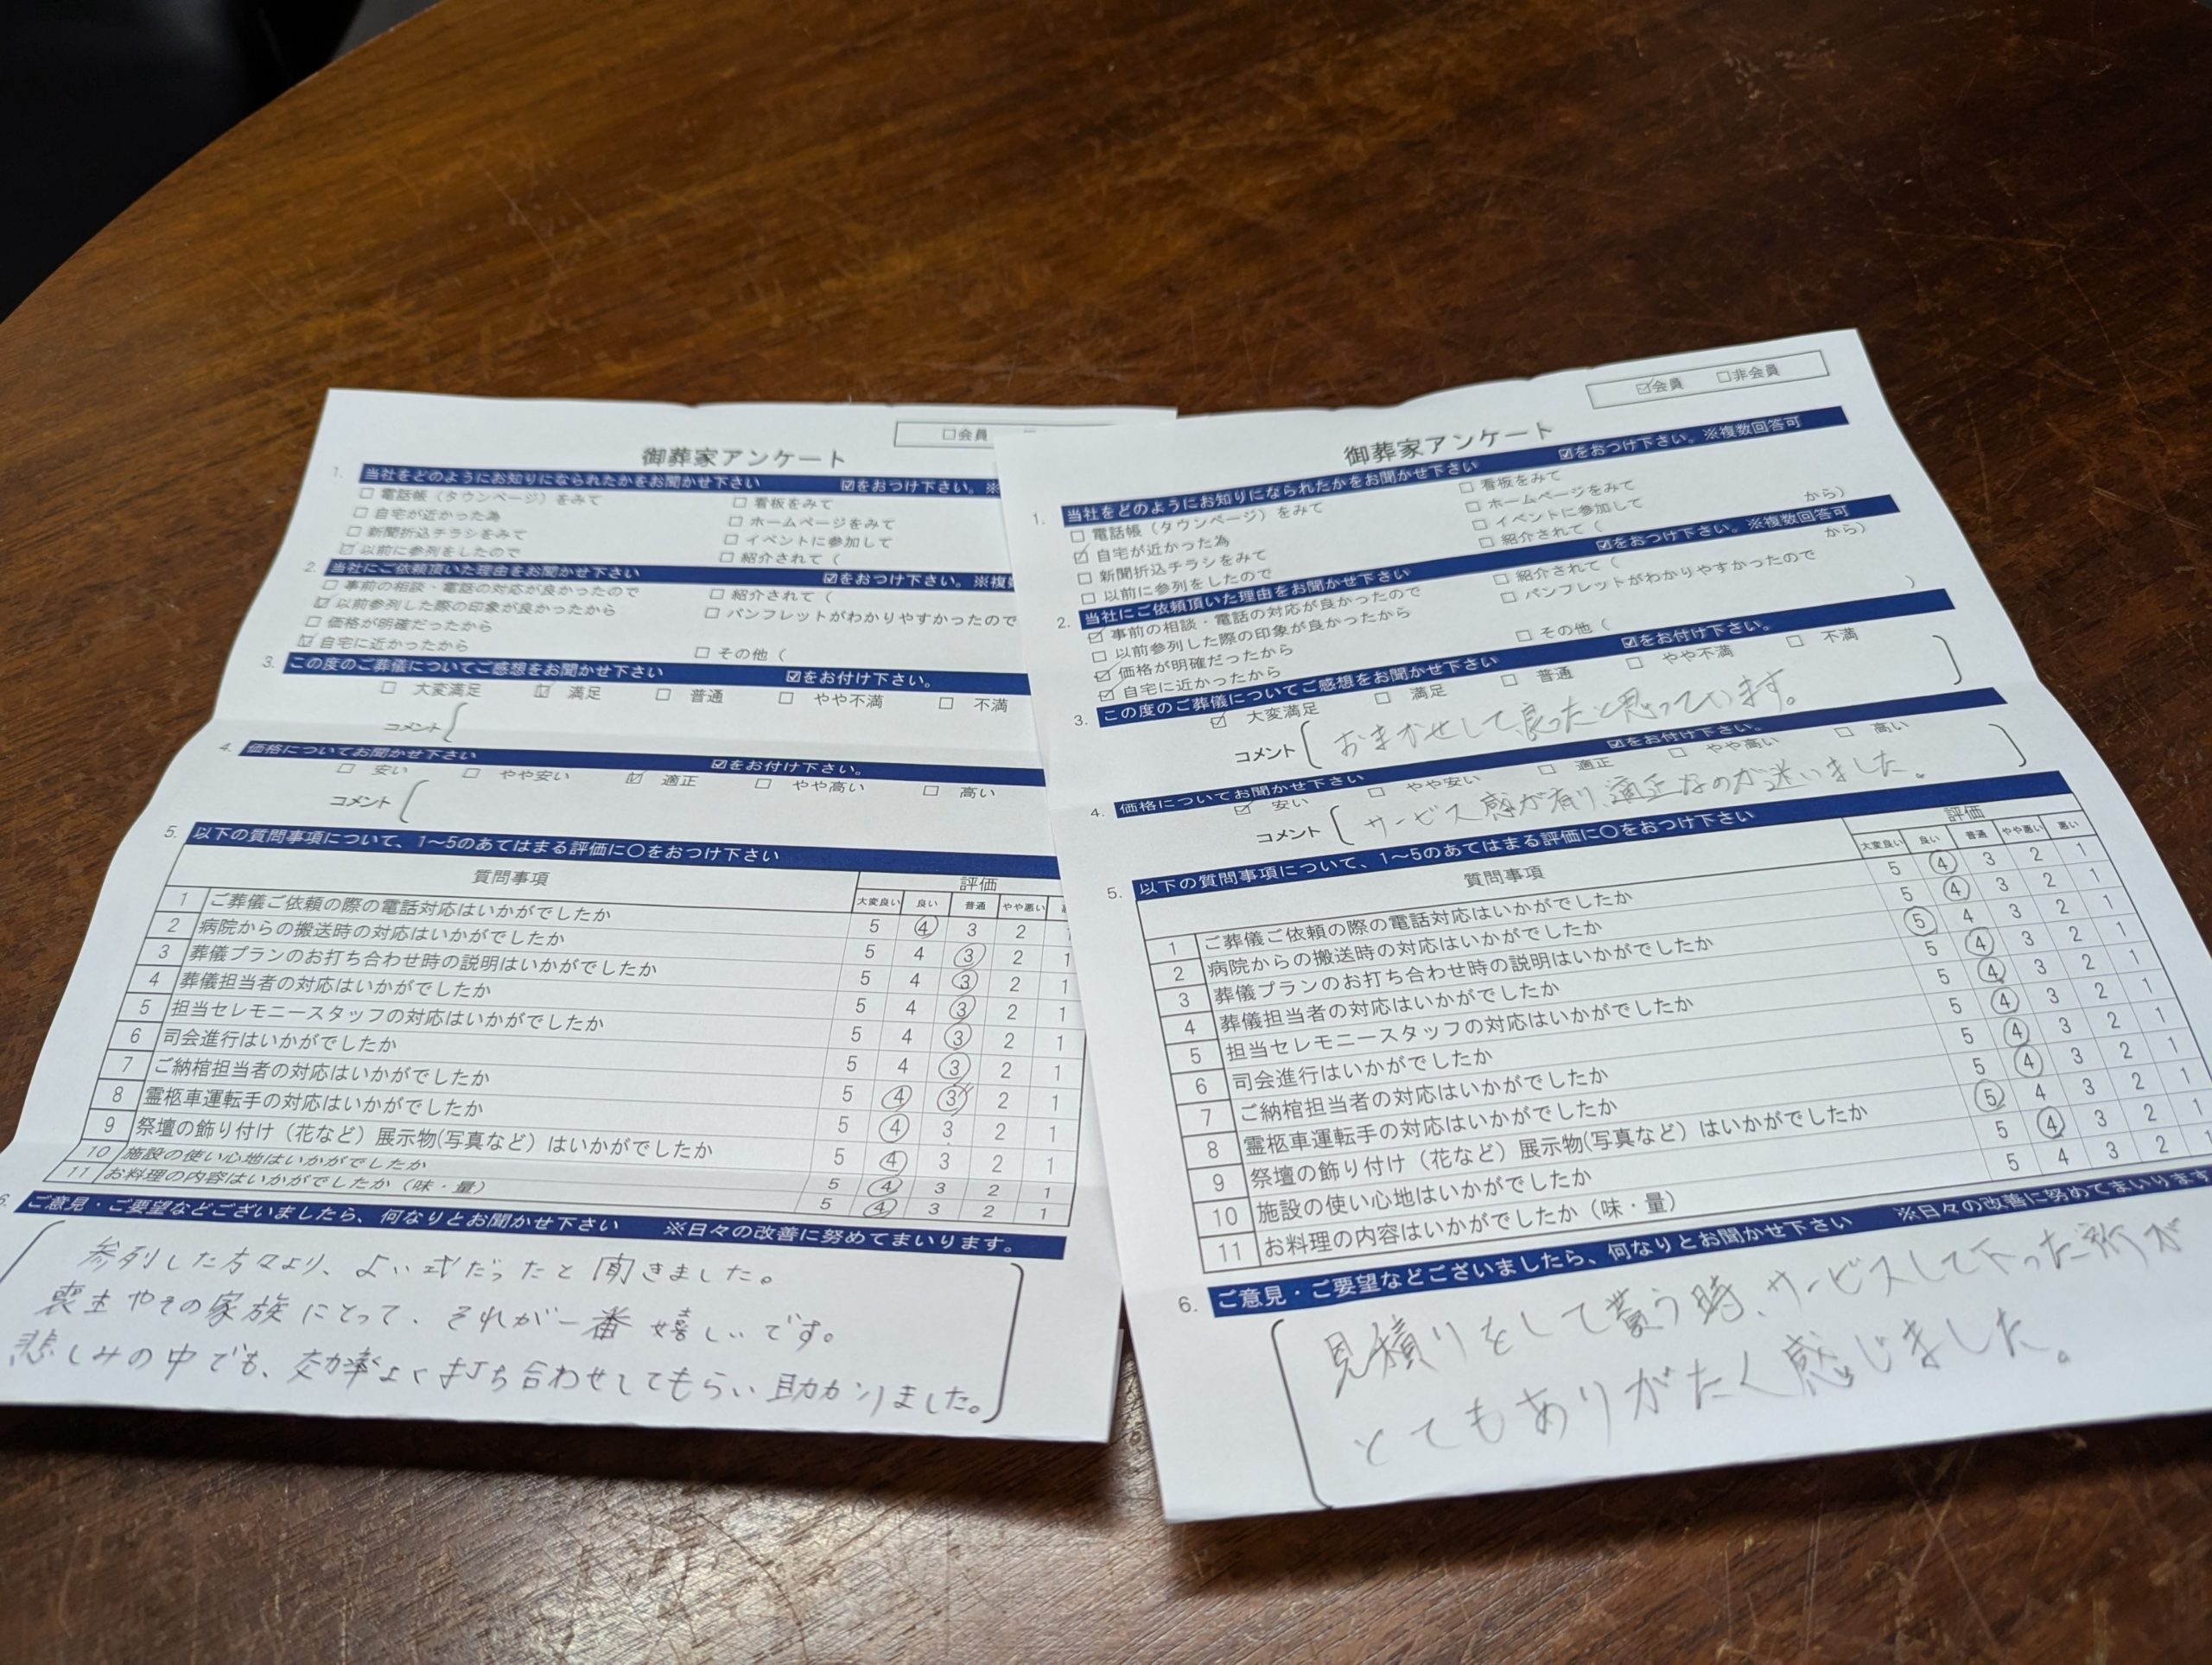 □会員
御葬家アンケート
1. 当社をどのようにお知りになられたかをお聞かせ下さい ☑をおつけ下さい。※
□ 電話帳（タウンページ）をみて □ 看板をみて
□ 自宅が近かった為 □ ホームページをみて
□ 新聞折込チラシをみて □ イベントに参加して
☑ 以前に参列をしたので □ 紹介されて（
2. 当社にご依頼頂いた理由をお聞かせ下さい ☑をおつけ下さい。※複数
□ 事前の相談・電話の対応が良かったので □ 紹介されて（
☑ 以前参列した際の印象が良かったから □ パンフレットがわかりやすかったので
□ 価格が明確だったから
☑ 自宅に近かったから □ その他（
3. この度のご葬儀についてご感想をお聞かせ下さい ☑をお付け下さい。
□ 大変満足 ☑ 満足 □ 普通 □ やや不満 □ 不満
コメント
4. 価格についてお聞かせ下さい ☑をお付け下さい。
□ 安い □ やや安い ☑ 適正 □ やや高い □ 高い
コメント
5. 以下の質問事項について、1～5のあてはまる評価に○をおつけ下さい
質問事項 評価
大変良い 良い 普通 やや悪い
1 ご葬儀ご依頼の際の電話対応はいかがでしたか 5 ④ 3 2
2 病院からの搬送時の対応はいかがでしたか 5 4 ③ 2 1
3 葬儀プランのお打ち合わせ時の説明はいかがでしたか 5 4 ③ 2 1
4 葬儀担当者の対応はいかがでしたか 5 4 ③ 2 1
5 担当セレモニースタッフの対応はいかがでしたか 5 4 ③ 2 1
6 司会進行はいかがでしたか 5 4 ③ 2 1
7 ご納棺担当者の対応はいかがでしたか 5 ④ ③ 2 1
8 霊柩車運転手の対応はいかがでしたか 5 ④ 3 2 1
9 祭壇の飾り付け（花など）展示物(写真など）はいかがでしたか 5 ④ 3 2 1
10 施設の使い心地はいかがでしたか 5 ④ 3 2 1
11 お料理の内容はいかがでしたか（味・量） 5 ④ 3 2 1
6. ご意見・ご要望などございましたら、何なりとお聞かせ下さい ※日々の改善に努めてまいります。
参列した方々より、よい式だったと聞きました。
喪主やその家族にとって、それが一番嬉しいです。
悲しみの中でも、効率よく打ち合わせしてもらい助かりました。
☑会員 □非会員
御葬家アンケート
1. 当社をどのようにお知りになられたかをお聞かせ下さい ☑をおつけ下さい。※複数回答可
□ 電話帳（タウンページ）をみて □ 看板をみて
☑ 自宅が近かった為 □ ホームページをみて
□ 新聞折込チラシをみて □ イベントに参加して
□ 以前に参列をしたので □ 紹介されて（ から）
2. 当社にご依頼頂いた理由をお聞かせ下さい ☑をおつけ下さい。※複数回答可
☑ 事前の相談・電話の対応が良かったので □ 紹介されて（ から）
□ 以前参列した際の印象が良かったから □ パンフレットがわかりやすかったので
☑ 価格が明確だったから
☑ 自宅に近かったから □ その他（ ）
3. この度のご葬儀についてご感想をお聞かせ下さい ☑をお付け下さい。
☑ 大変満足 □ 満足 □ 普通 □ やや不満 □ 不満
コメント おまかせして良ったと思っています。
4. 価格についてお聞かせ下さい ☑をお付け下さい。
☑ 安い □ やや安い □ 適正 □ やや高い □ 高い
コメント サービス感が有り、適正なのか迷いました。
5. 以下の質問事項について、1～5のあてはまる評価に○をおつけ下さい
質問事項 評価
大変良い 良い 普通 やや悪い 悪い
1 ご葬儀ご依頼の際の電話対応はいかがでしたか 5 ④ 3 2 1
2 病院からの搬送時の対応はいかがでしたか 5 ④ 3 2 1
3 葬儀プランのお打ち合わせ時の説明はいかがでしたか ⑤ 4 3 2 1
4 葬儀担当者の対応はいかがでしたか 5 ④ 3 2 1
5 担当セレモニースタッフの対応はいかがでしたか 5 ④ 3 2 1
6 司会進行はいかがでしたか 5 ④ 3 2 1
7 ご納棺担当者の対応はいかがでしたか 5 ④ 3 2 1
8 霊柩車運転手の対応はいかがでしたか 5 ④ 3 2 1
9 祭壇の飾り付け（花など）展示物(写真など）はいかがでしたか ⑤ 4 3 2 1
10 施設の使い心地はいかがでしたか 5 ④ 3 2 1
11 お料理の内容はいかがでしたか（味・量） 5 4 3 2 1
6. ご意見・ご要望などございましたら、何なりとお聞かせ下さい ※日々の改善に努めてまいります
見積りをして貰う時、サービスして下った所が
とてもありがたく感じました。